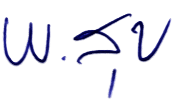 พ.สุข